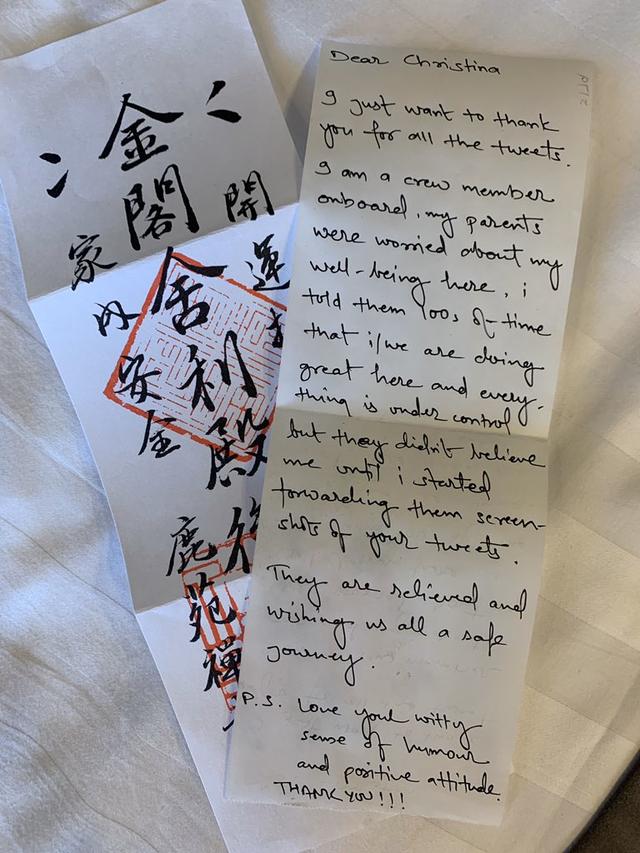 開運
金閣舎利殿
家内安全
鹿苑禪
Dear Christina
I just want to thank
you for all the tweets.
I am a crew member
onboard, my parents
were worried about my
well-being here, i
told them 100s of time
that i/we are doing
great here and every-
thing is under control
but they didn't believe
me until i started
forwarding them screen-
shots of your tweets.
They are relieved and
wishing us all a safe
journey.
P.S. Love your witty
sense of humour
and positive attitude.
THANK YOU!!!